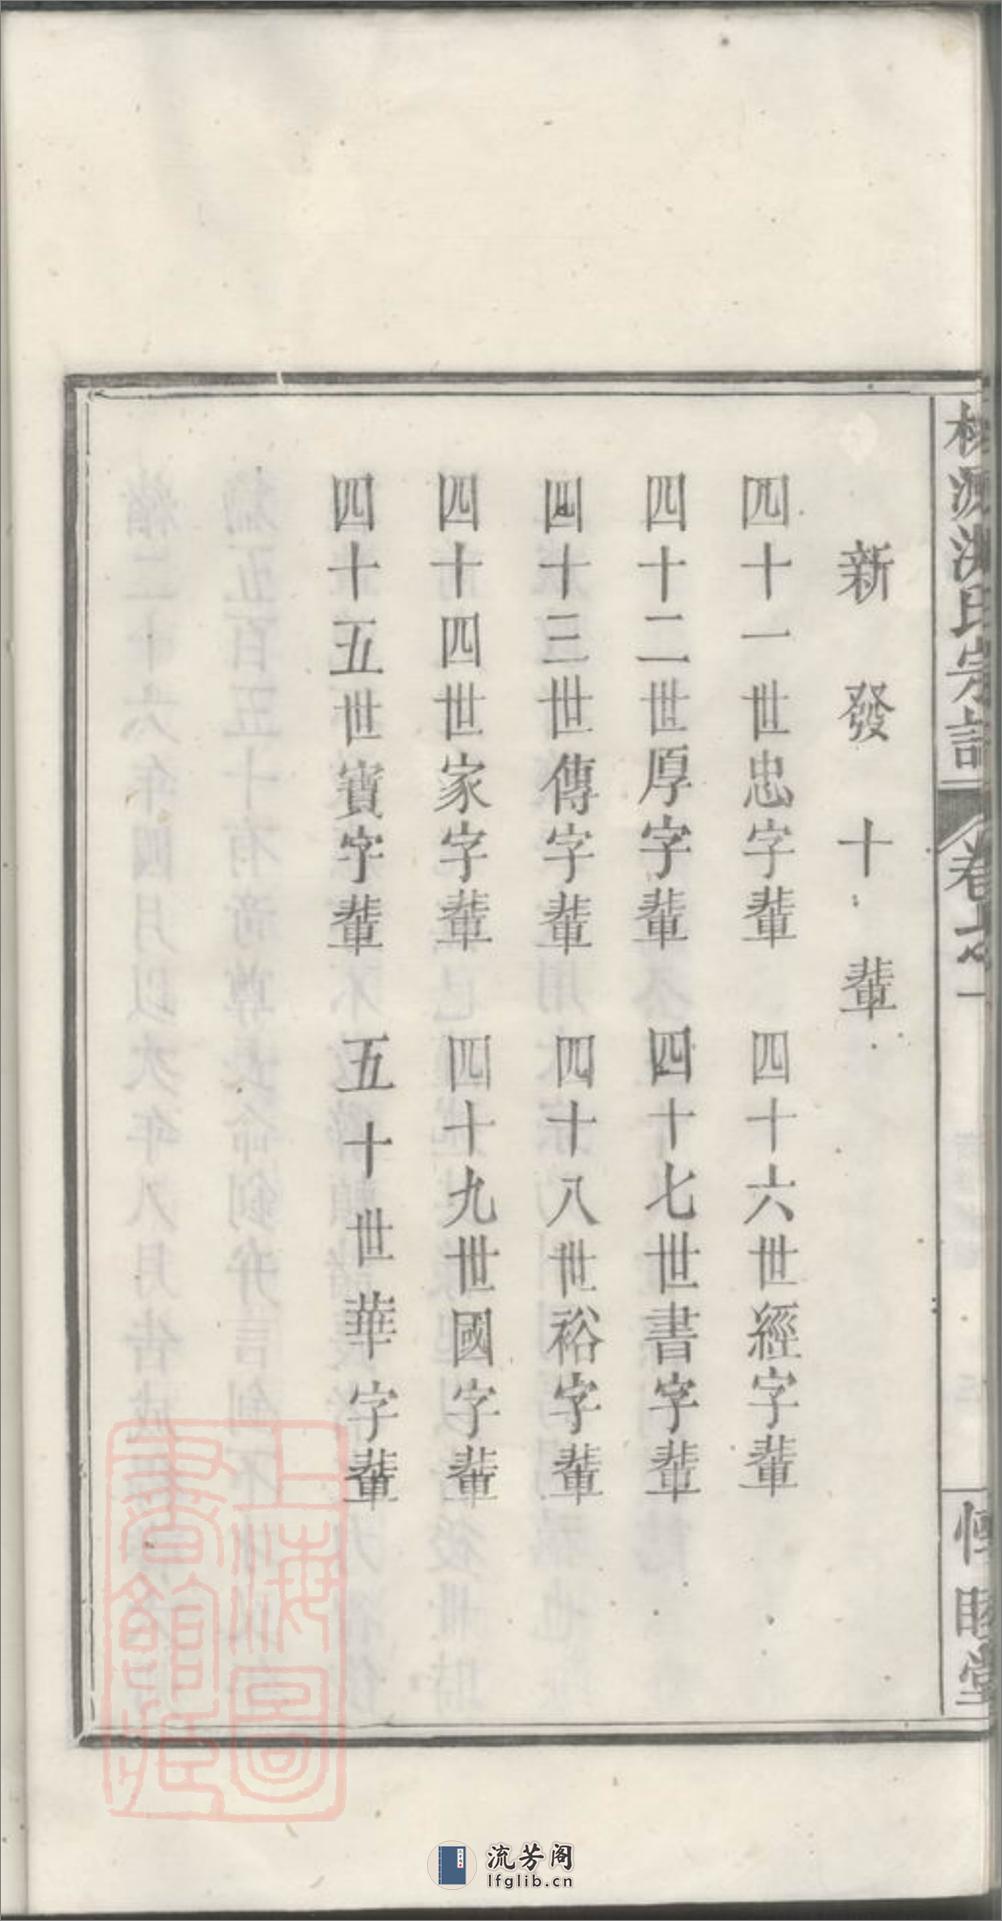 新發十輩
四十一世忠字輩 四十六世經字輩
四十二世厚字輩 四十七世書字輩
四十三世傳字輩 四十八世裕字輩
四十四世家字輩 四十九世國字輩
四十五世寶字輩 五十世華字輩
源洪氏宗譜
卷之一
惇睦堂
上海圖書館藏
流芳阁
lfglib.cn